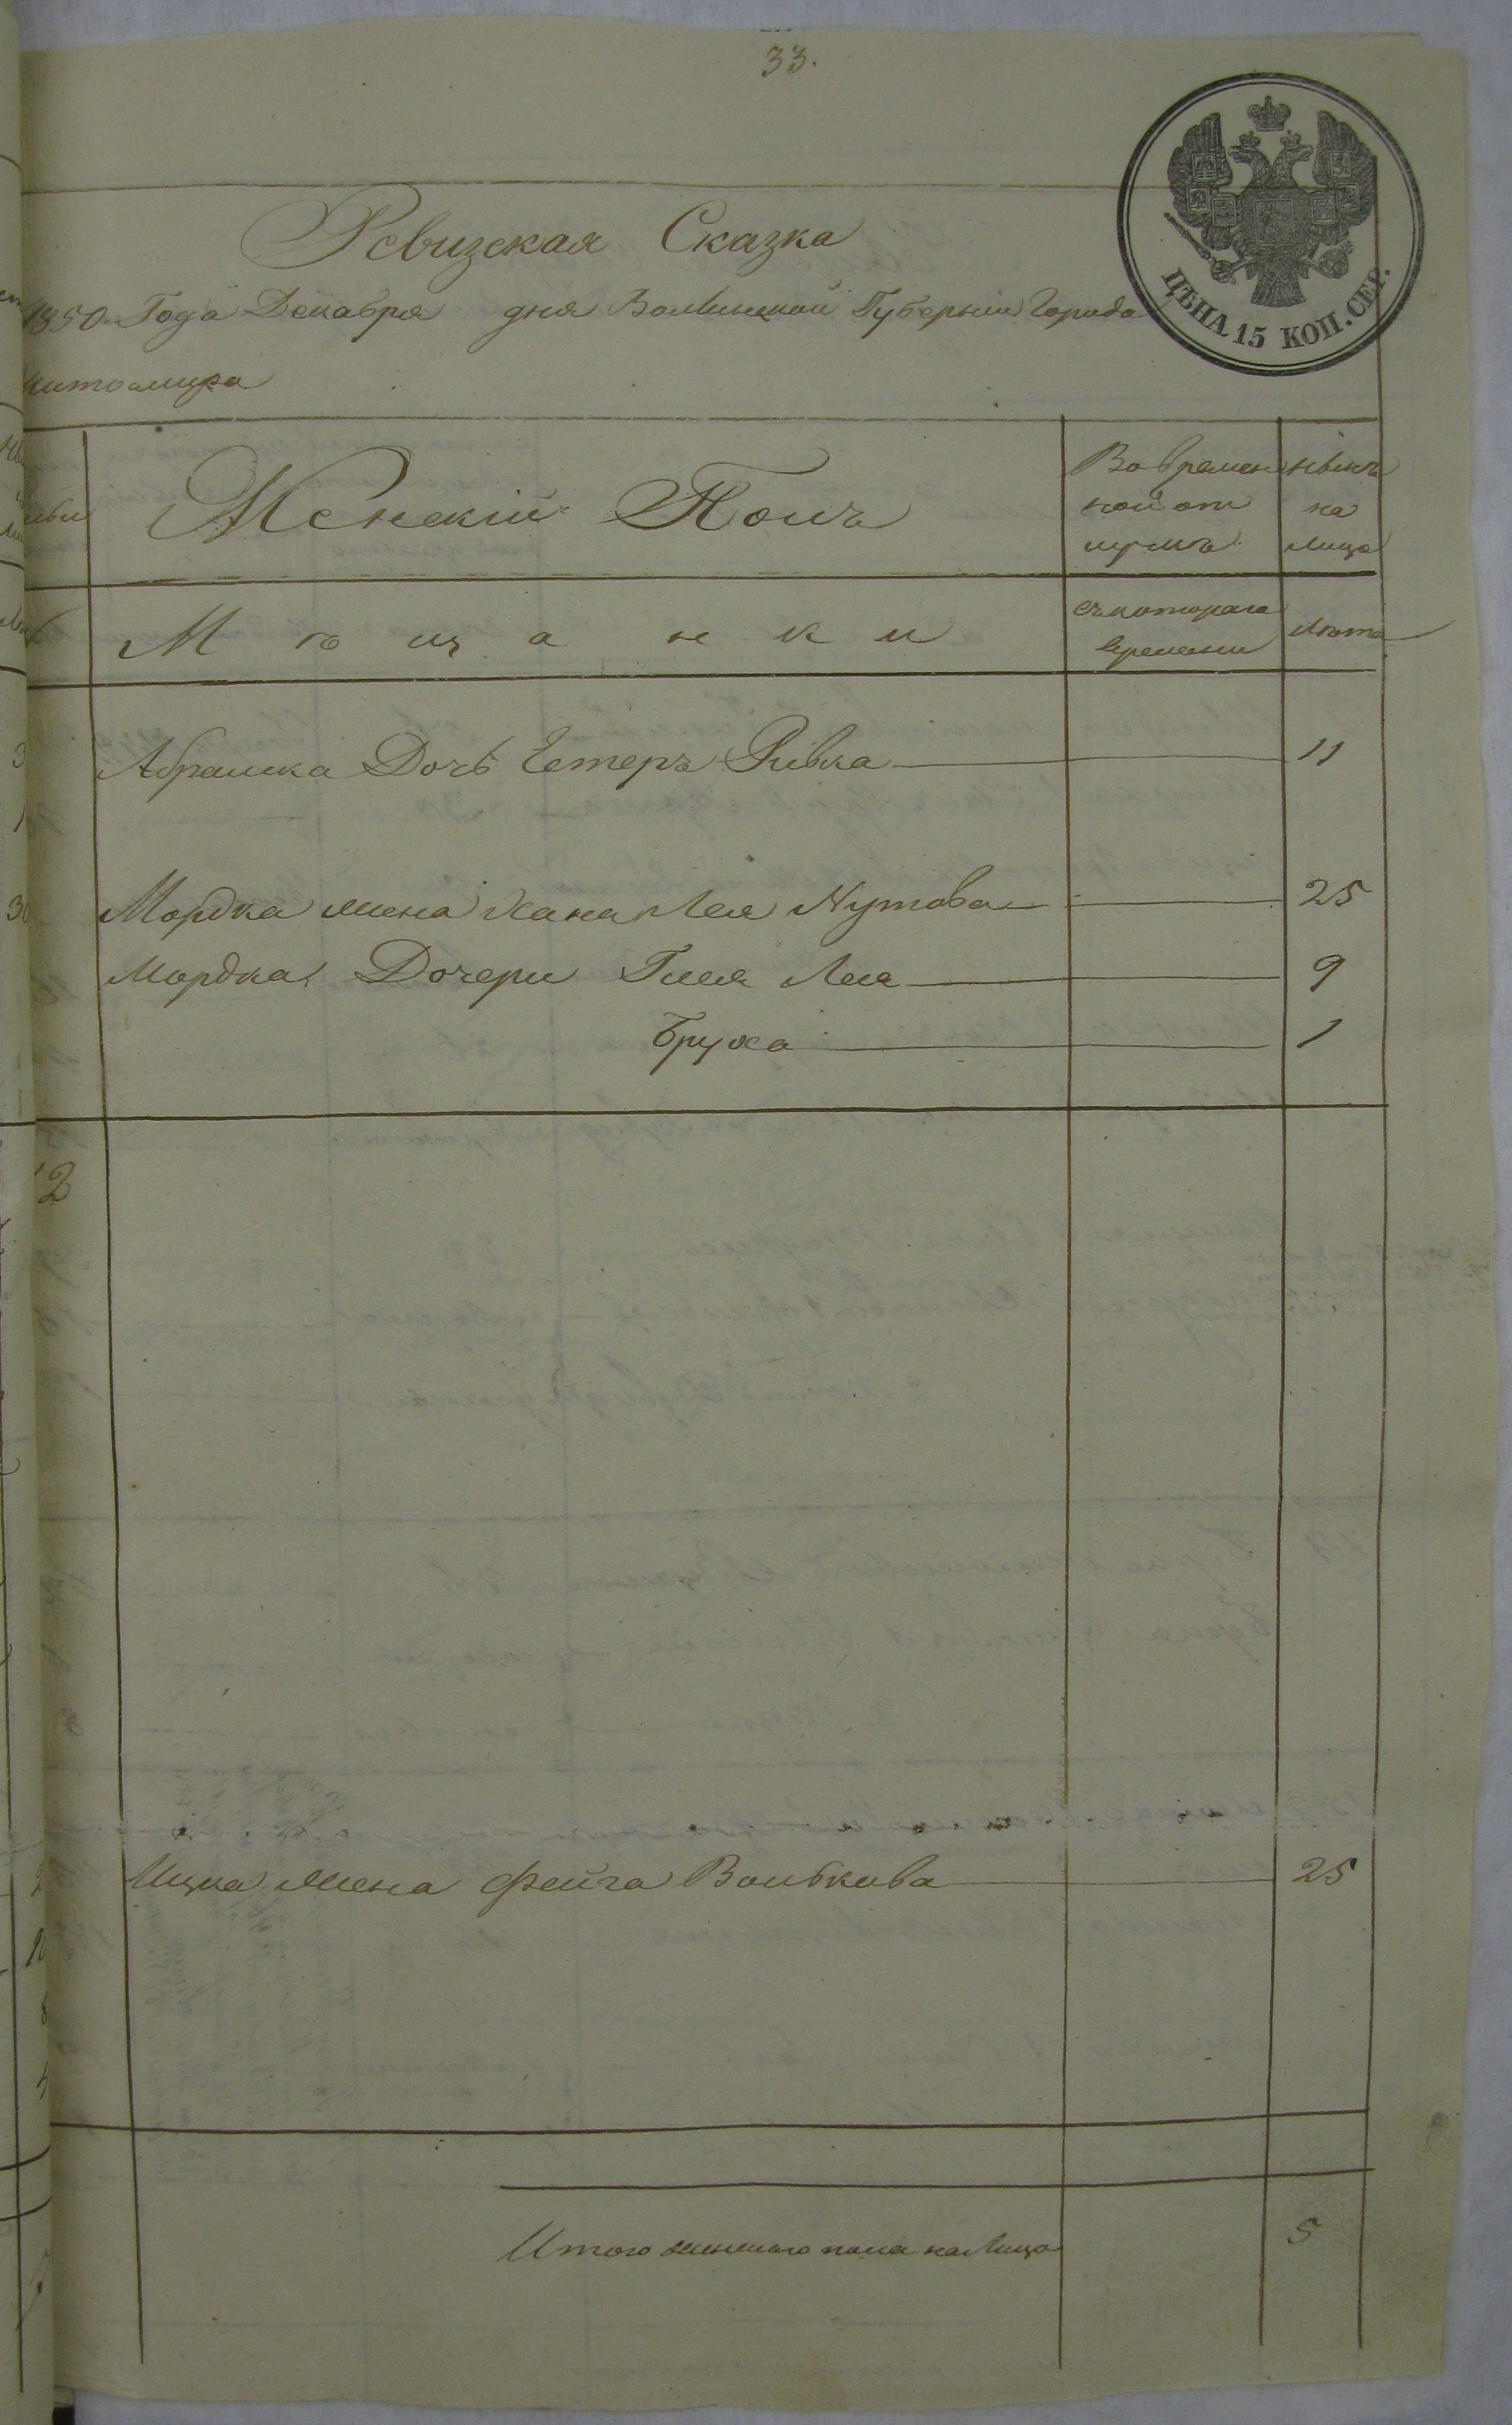 33.
ЦѢНА 15 КОП. СЕР.
Ревизская Сказка
1850 Года Декабря дня Волынской Губерніи Города
Житомира
Женскій Полъ
Во времен
ной от
лучкѣ
нынѣ
на
лицо
Мѣщанки
съ котораго
времени
Лѣта
Абрамка Дочь Естеръ Ривка 11
Мордка жена Хана Лея Нутова 25
Мордка Дочери Гитля Лея 9
Бруха 1
2
Ицка жена Фейга Волькова 25
Итого женскаго пола на Лицо 5